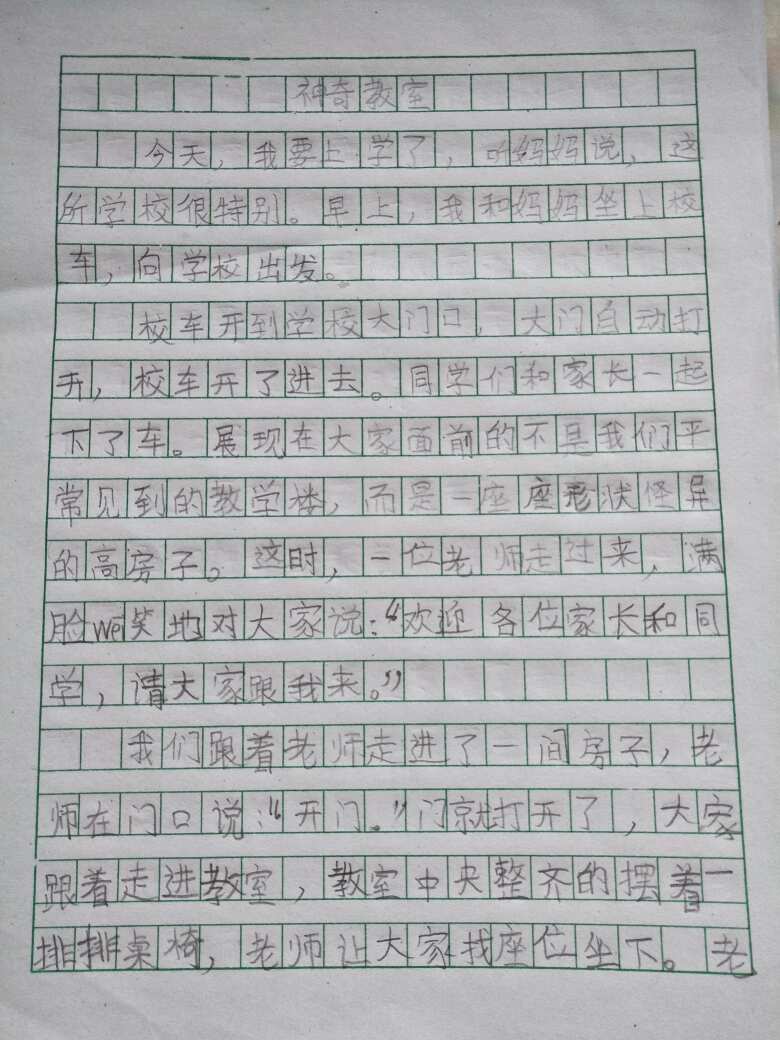 神奇教室
今天，我要上学了，听妈妈说，这
所学校很特别。早上，我和妈妈坐上校
车，向学校出发。
校车开到学校大门口，大门自动打
开，校车开了进去。同学们和家长一起
下了车。展现在大家面前的不是我们平
常见到的教学楼，而是一座座形状怪异
的高房子。这时，一位老师走过来，满
脸wēi笑地对大家说：“欢迎各位家长和同
学，请大家跟我来。”
我们跟着老师走进了一间房子，老
师在门口说：“开门。”门就打开了，大家
跟着走进教室，教室中央整齐的摆着一
排排桌椅，老师让大家找座位坐下。老